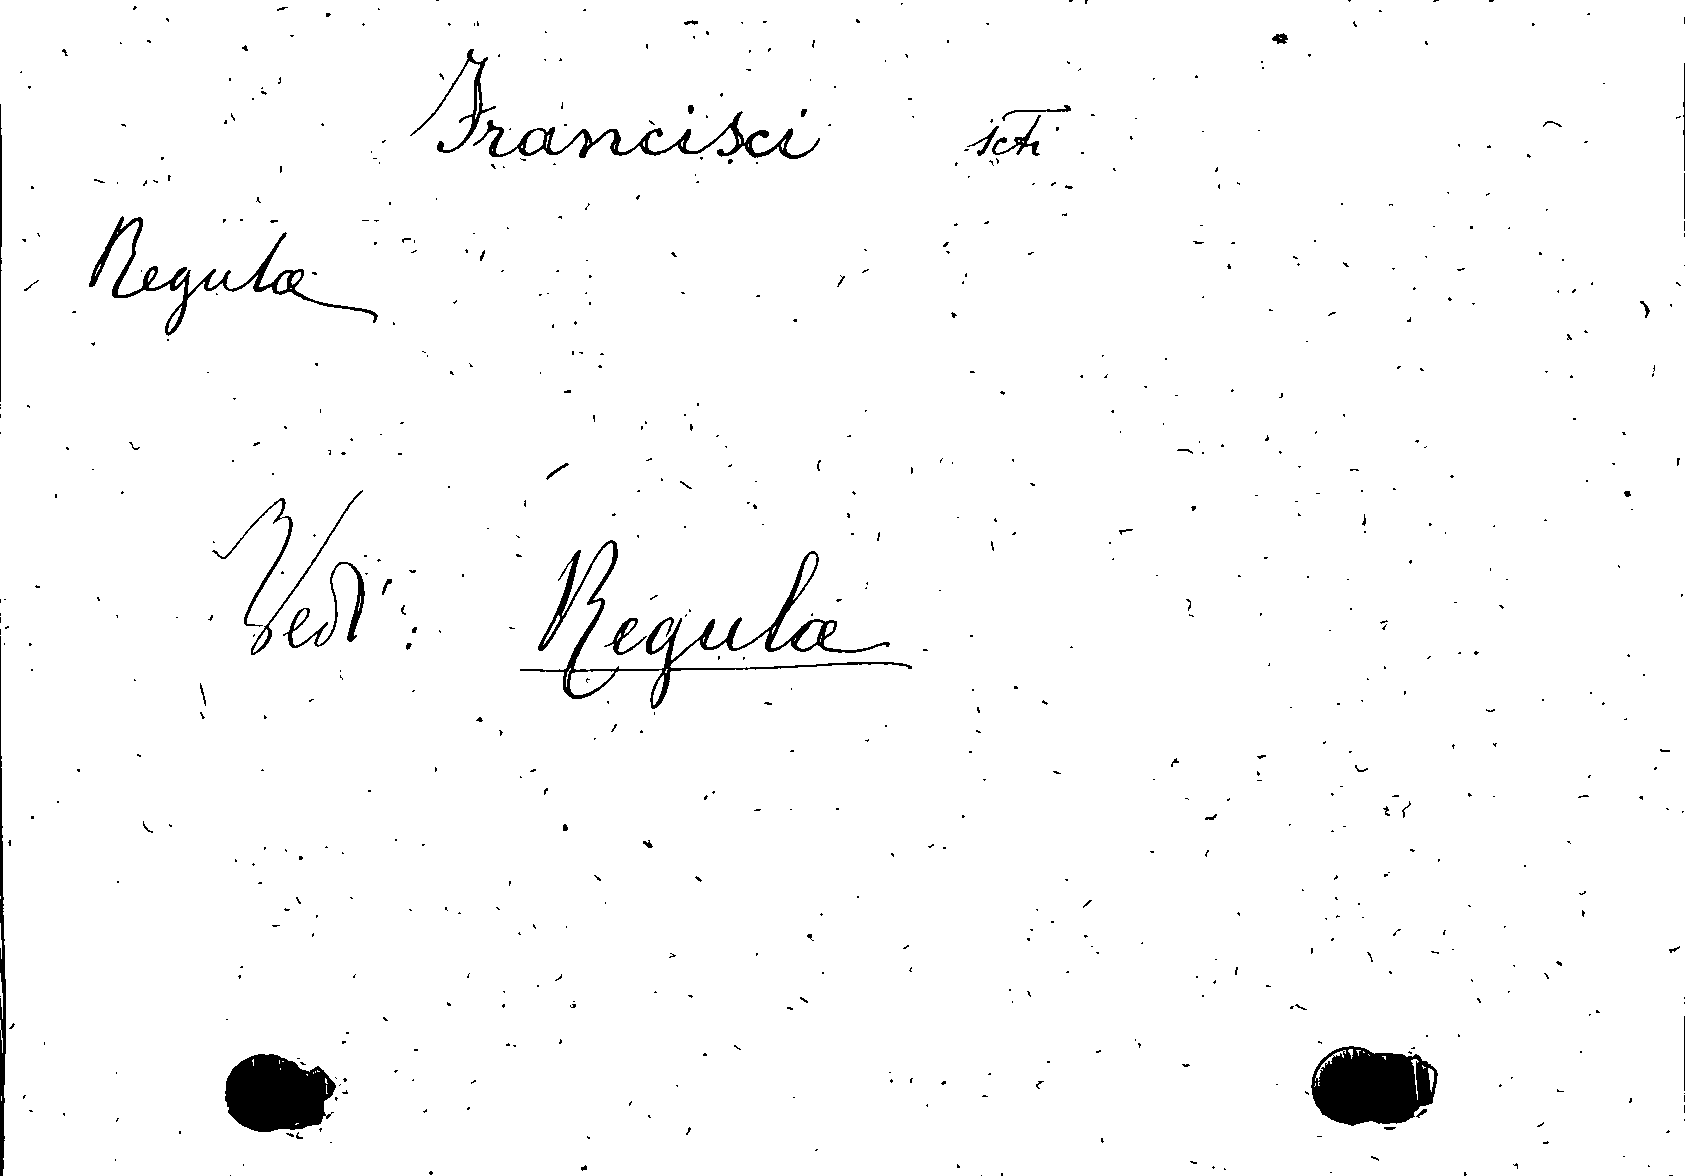 Francisci scti
Regulæ
Vedi: Regulæ